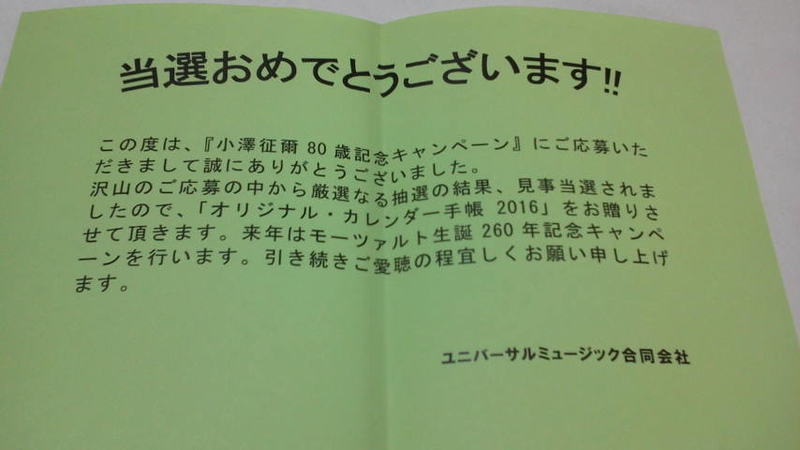 当選おめでとうございます!!
この度は、『小澤征爾 80 歳記念キャンペーン』にご応募いた
だきまして誠にありがとうございました。
沢山のご応募の中から厳選なる抽選の結果、見事当選されま
したので、「オリジナル・カレンダー手帳 2016」をお贈りさ
せて頂きます。来年はモーツァルト生誕 260 年記念キャンペ
ーンを行います。引き続きご愛聴の程宜しくお願い申し上げ
ます。
ユニバーサルミュージック合同会社